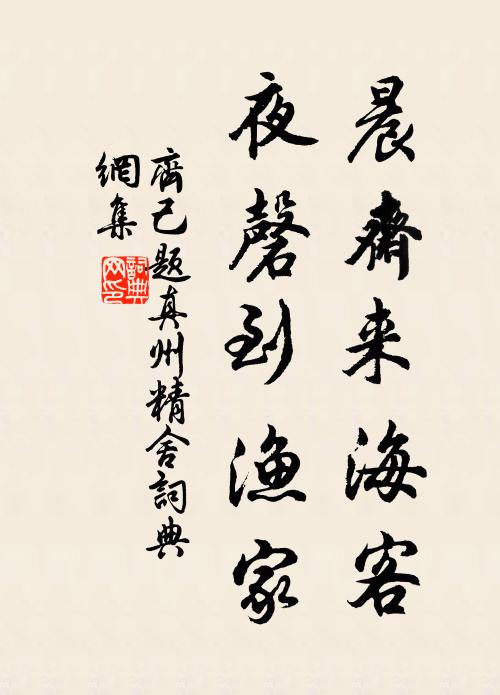 晨齋来海客
夜磬到漁家
齊己題真州精舍詞典
網集
詞典網印